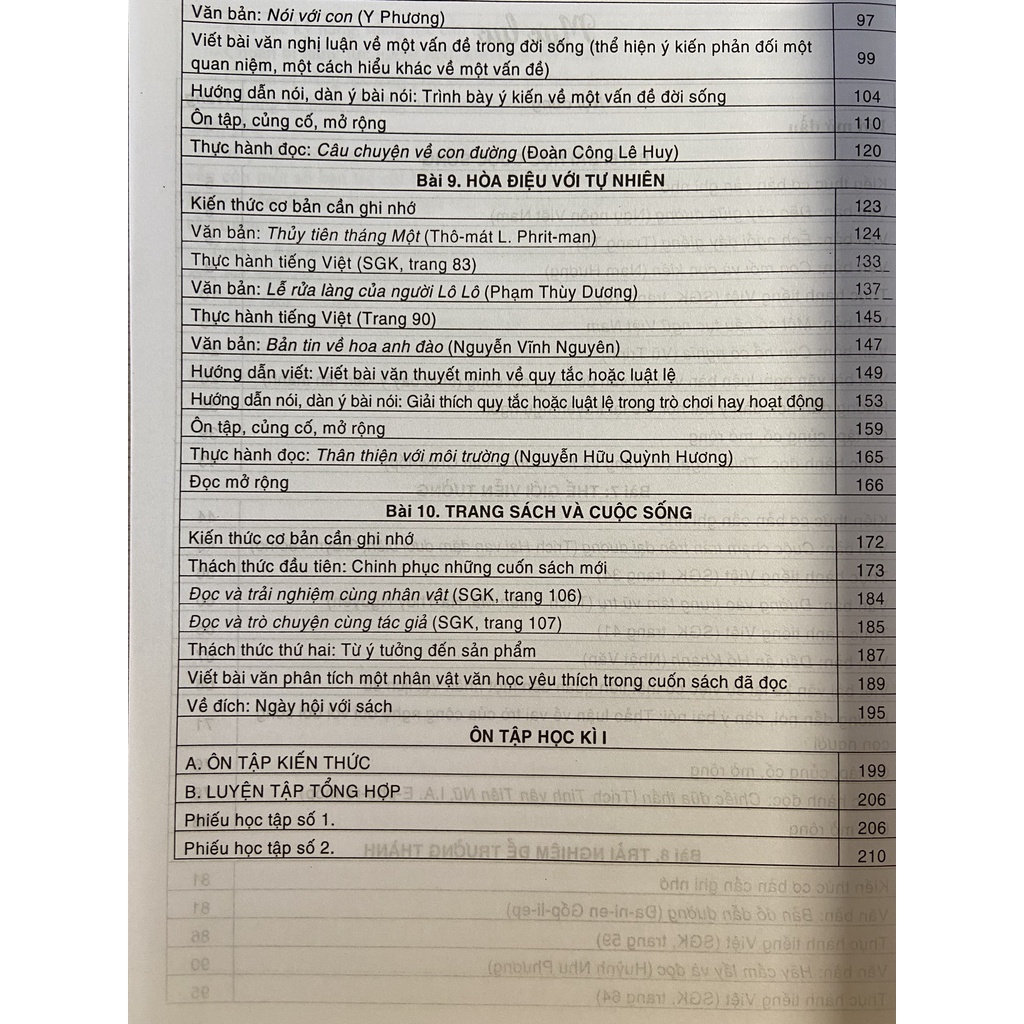 Văn bản: Nói với con (Y Phương) 97
Viết bài văn nghị luận về một vấn đề trong đời sống (thể hiện ý kiến phản đối một
quan niệm, một cách hiểu khác về một vấn đề) 99
Hướng dẫn nói, dàn ý bài nói: Trình bày ý kiến về một vấn đề đời sống 104
Ôn tập, củng cố, mở rộng 110
Thực hành đọc: Câu chuyện về con đường (Đoàn Công Lê Huy) 120
Bài 9. HÒA ĐIỆU VỚI TỰ NHIÊN
Kiến thức cơ bản cần ghi nhớ 123
Văn bản: Thủy tiên tháng Một (Thô-mát L. Phrit-man) 124
Thực hành tiếng Việt (SGK, trang 83) 133
Văn bản: Lễ rửa làng của người Lô Lô (Phạm Thùy Dương) 137
Thực hành tiếng Việt (Trang 90) 145
Văn bản: Bản tin về hoa anh đào (Nguyễn Vĩnh Nguyên) 147
Hướng dẫn viết: Viết bài văn thuyết minh về quy tắc hoặc luật lệ 149
Hướng dẫn nói, dàn ý bài nói: Giải thích quy tắc hoặc luật lệ trong trò chơi hay hoạt động 153
Ôn tập, củng cố, mở rộng 159
Thực hành đọc: Thân thiện với môi trường (Nguyễn Hữu Quỳnh Hương) 165
Đọc mở rộng 166
Bài 10. TRANG SÁCH VÀ CUỘC SỐNG
Kiến thức cơ bản cần ghi nhớ 172
Thách thức đầu tiên: Chinh phục những cuốn sách mới 173
Đọc và trải nghiệm cùng nhân vật (SGK, trang 106) 184
Đọc và trò chuyện cùng tác giả (SGK, trang 107) 185
Thách thức thứ hai: Từ ý tưởng đến sản phẩm 187
Viết bài văn phân tích một nhân vật văn học yêu thích trong cuốn sách đã đọc 189
Về đích: Ngày hội với sách 195
ÔN TẬP HỌC KÌ I
A. ÔN TẬP KIẾN THỨC 199
B. LUYỆN TẬP TỔNG HỢP 206
Phiếu học tập số 1. 206
Phiếu học tập số 2. 210